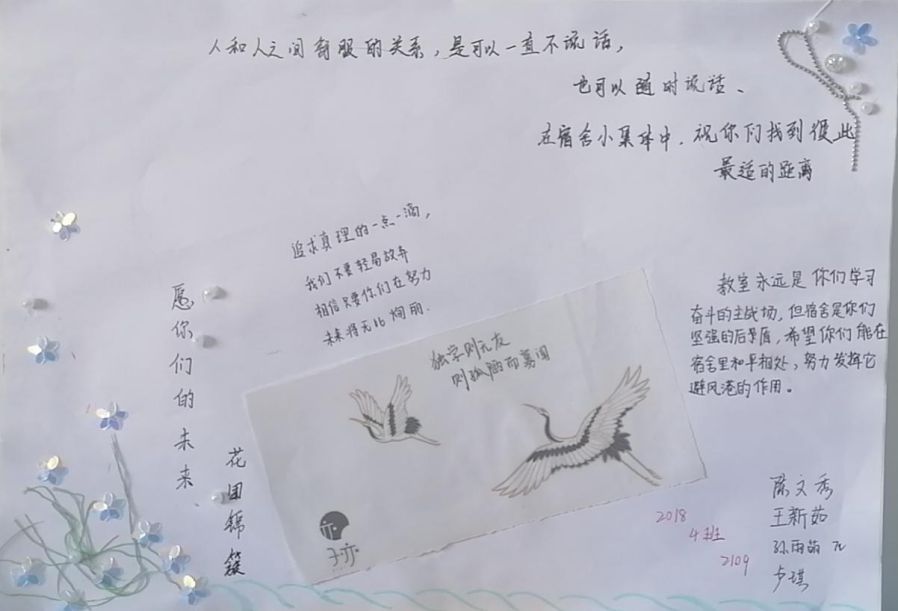 人和人之间舒服的关系，是可以一直不说话，
也可以随时说话、
在宿舍小集体中，祝你们找到彼此
最适的距离
追求真理的一点一滴，
我们不要轻易放弃
相信只要你们在努力
未来将无比绚丽.
愿你们的未来
花团锦簇
独学则无友
则孤陋而寡闻
亦
子亦
教室永远是你们学习
奋斗的主战场，但宿舍是你们
坚强的后盾，希望你们能在
宿舍里和平相处，努力发挥它
避风港的作用。
2018
4班
2109
陈文秀
王新茹
孙雨萌
卢琪